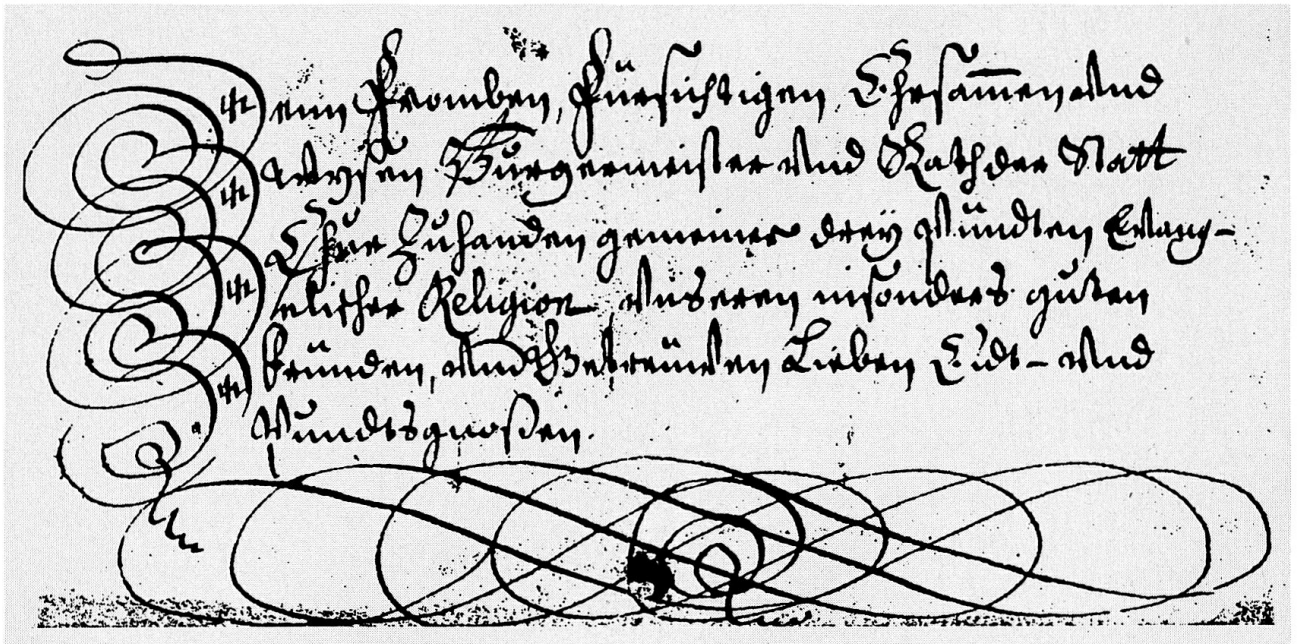 Denn Fromben, Fürsichtigen, Ehrsam̅en vnd
Wysen Burgermeister vnd Rath der Statt
Chur Zuhanden gemeiner drey Pündten Evang-
elischer Religion, vnseren insonders guten
fründen, vnd Getreüwen Lieben Eidt- vnd
Pundtsgnoßen.